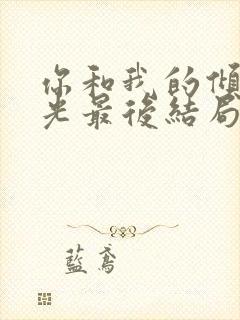 你和我的傾
光最後結局
藍鳶